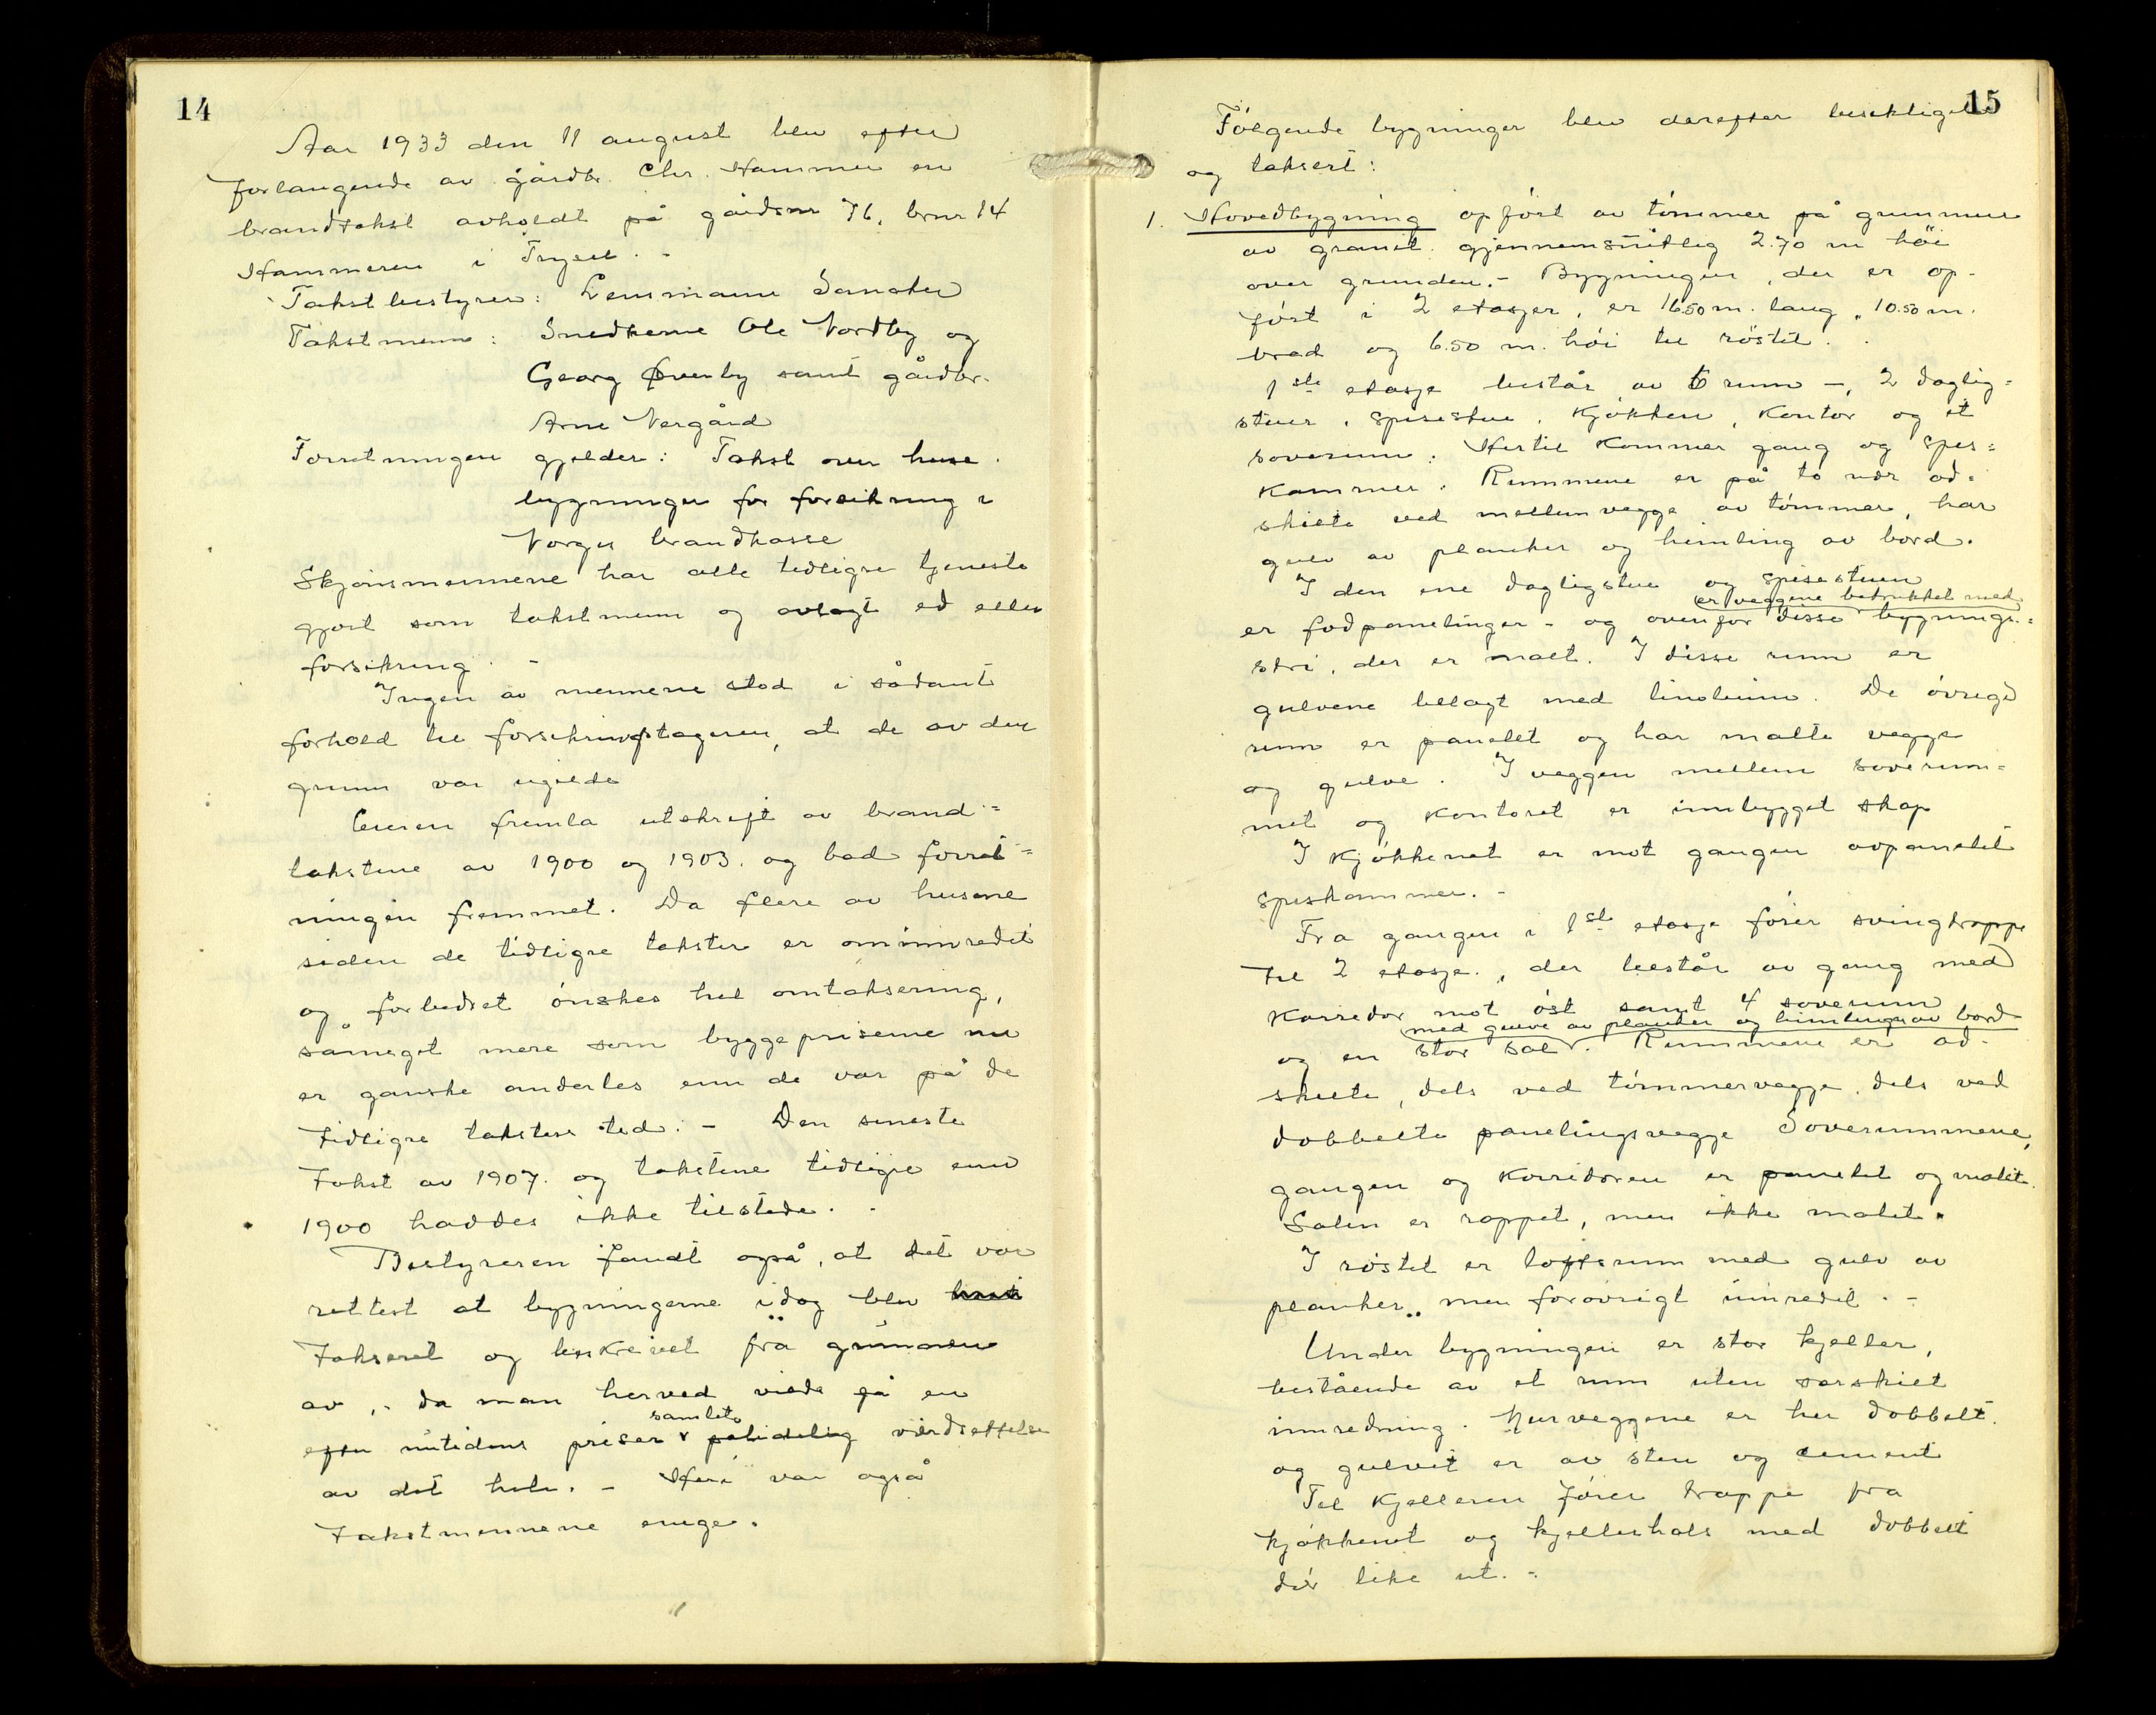 14
Aar 1933 den 11 august blev efter
forlangende av gårdbr. Chr. Hammer en
brandtakst avholdt på gårdsnr 76, brnr 14
Hammeren i Trysil. -
Takstbestyrer: Lensmann Sanaker
Takstmenn: Snedkerne Ole Nordby og
Georg Øverby samt gårdbr.
Arne Norgård
Forretningen gjelder: Takst over huse
bygninger for forsikring i
Norges brandkasse
Skjønsmennene har alle tidligre tjeneste
gjort som takstmenn og avlagt ed eller
forsikring. -
Ingen av mennene stod i sådant
forhold til forsikringstageren, at de av den
grunn var ugilde
Eieren fremla utskrift av brand-
takstene av 1900 og 1903. og bad forret-
ningen fremmet. Da flere av husene
siden de tidligre takster er ominnredet
og forbedret ønskes hel omtaksering,
såmeget mere som byggeprisene nu
er ganske anderles enn de var på de
tidligre taksters tid. - Den seneste
Takst av 1907. og takstene tidligre enn
1900 haddes ikke tilstede. -
Bestyreren fandt også, at det var
rettest at bygningerne idag blev
taksert og beskrevet fra grunnen
av, - da man herved vilde få en
samlet
efter nutidens priser pålidelig værdsettelse
av det hele. - Heri var også
Takstmennene enige.
15
Følgende bygninger blev derefter besiktiget
og taksert:
1. Hovedbygning opført av tømmer på grunnmur
av granit gjennemsnitlig 2.70 m høi
over grunden. - Bygningen, der er op-
ført i 2 etasjer, er 16.50 m. lang, 10.50 m.
bred og 6.50 m. høi til røstet.
1ste etasje består av 6 rum -, 2 daglig-
stuer, spisestue, kjøkken, kontor og et
soverum. Hertil kommer gang og spis-
kammer. Rummene er på to nær ad-
skilte ved mellemvegge av tømmer, har
gulv av planker og himling av bord.
I den ene dagligstue og spisestuen
er veggene betrukket med
er fodpanelinger - og ovenfor disse bygnings-
stri, der er malt. I disse rum er
gulvene belagt med linoleum. De øvrige
rum er panelet og har malte vegge
og gulve. I veggen mellem soverum-
met og kontoret er innbygget skap
I kjøkkenet er mot gangen avpanelet
spiskammer. -
Fra gangen i 1ste etasje fører svingtrappe
til 2 etasje., der består av gang med
korridor mot øst samt 4 soverum
med gulve av planker og himlinger av bord
og en stor sal. Rummene er ad-
skilte, dels ved tømmervegge, dels ved
dobbelte panelingsvegge. Soverummene,
gangen og korridoren er panelet og malet.
Salen er rappet, men ikke malet.
I røstet er loftsrum med gulv av
planker, men forøvrigt uinnredet. -
Under bygningen er stor kjeller,
bestående av et rum uten særskilt
innredning. Murveggene er her dobbelt.
og gulvet er av sten og cement
Til kjelleren fører trappe fra
kjøkkenet og kjellerhals med dobbelt
dør like ut. -